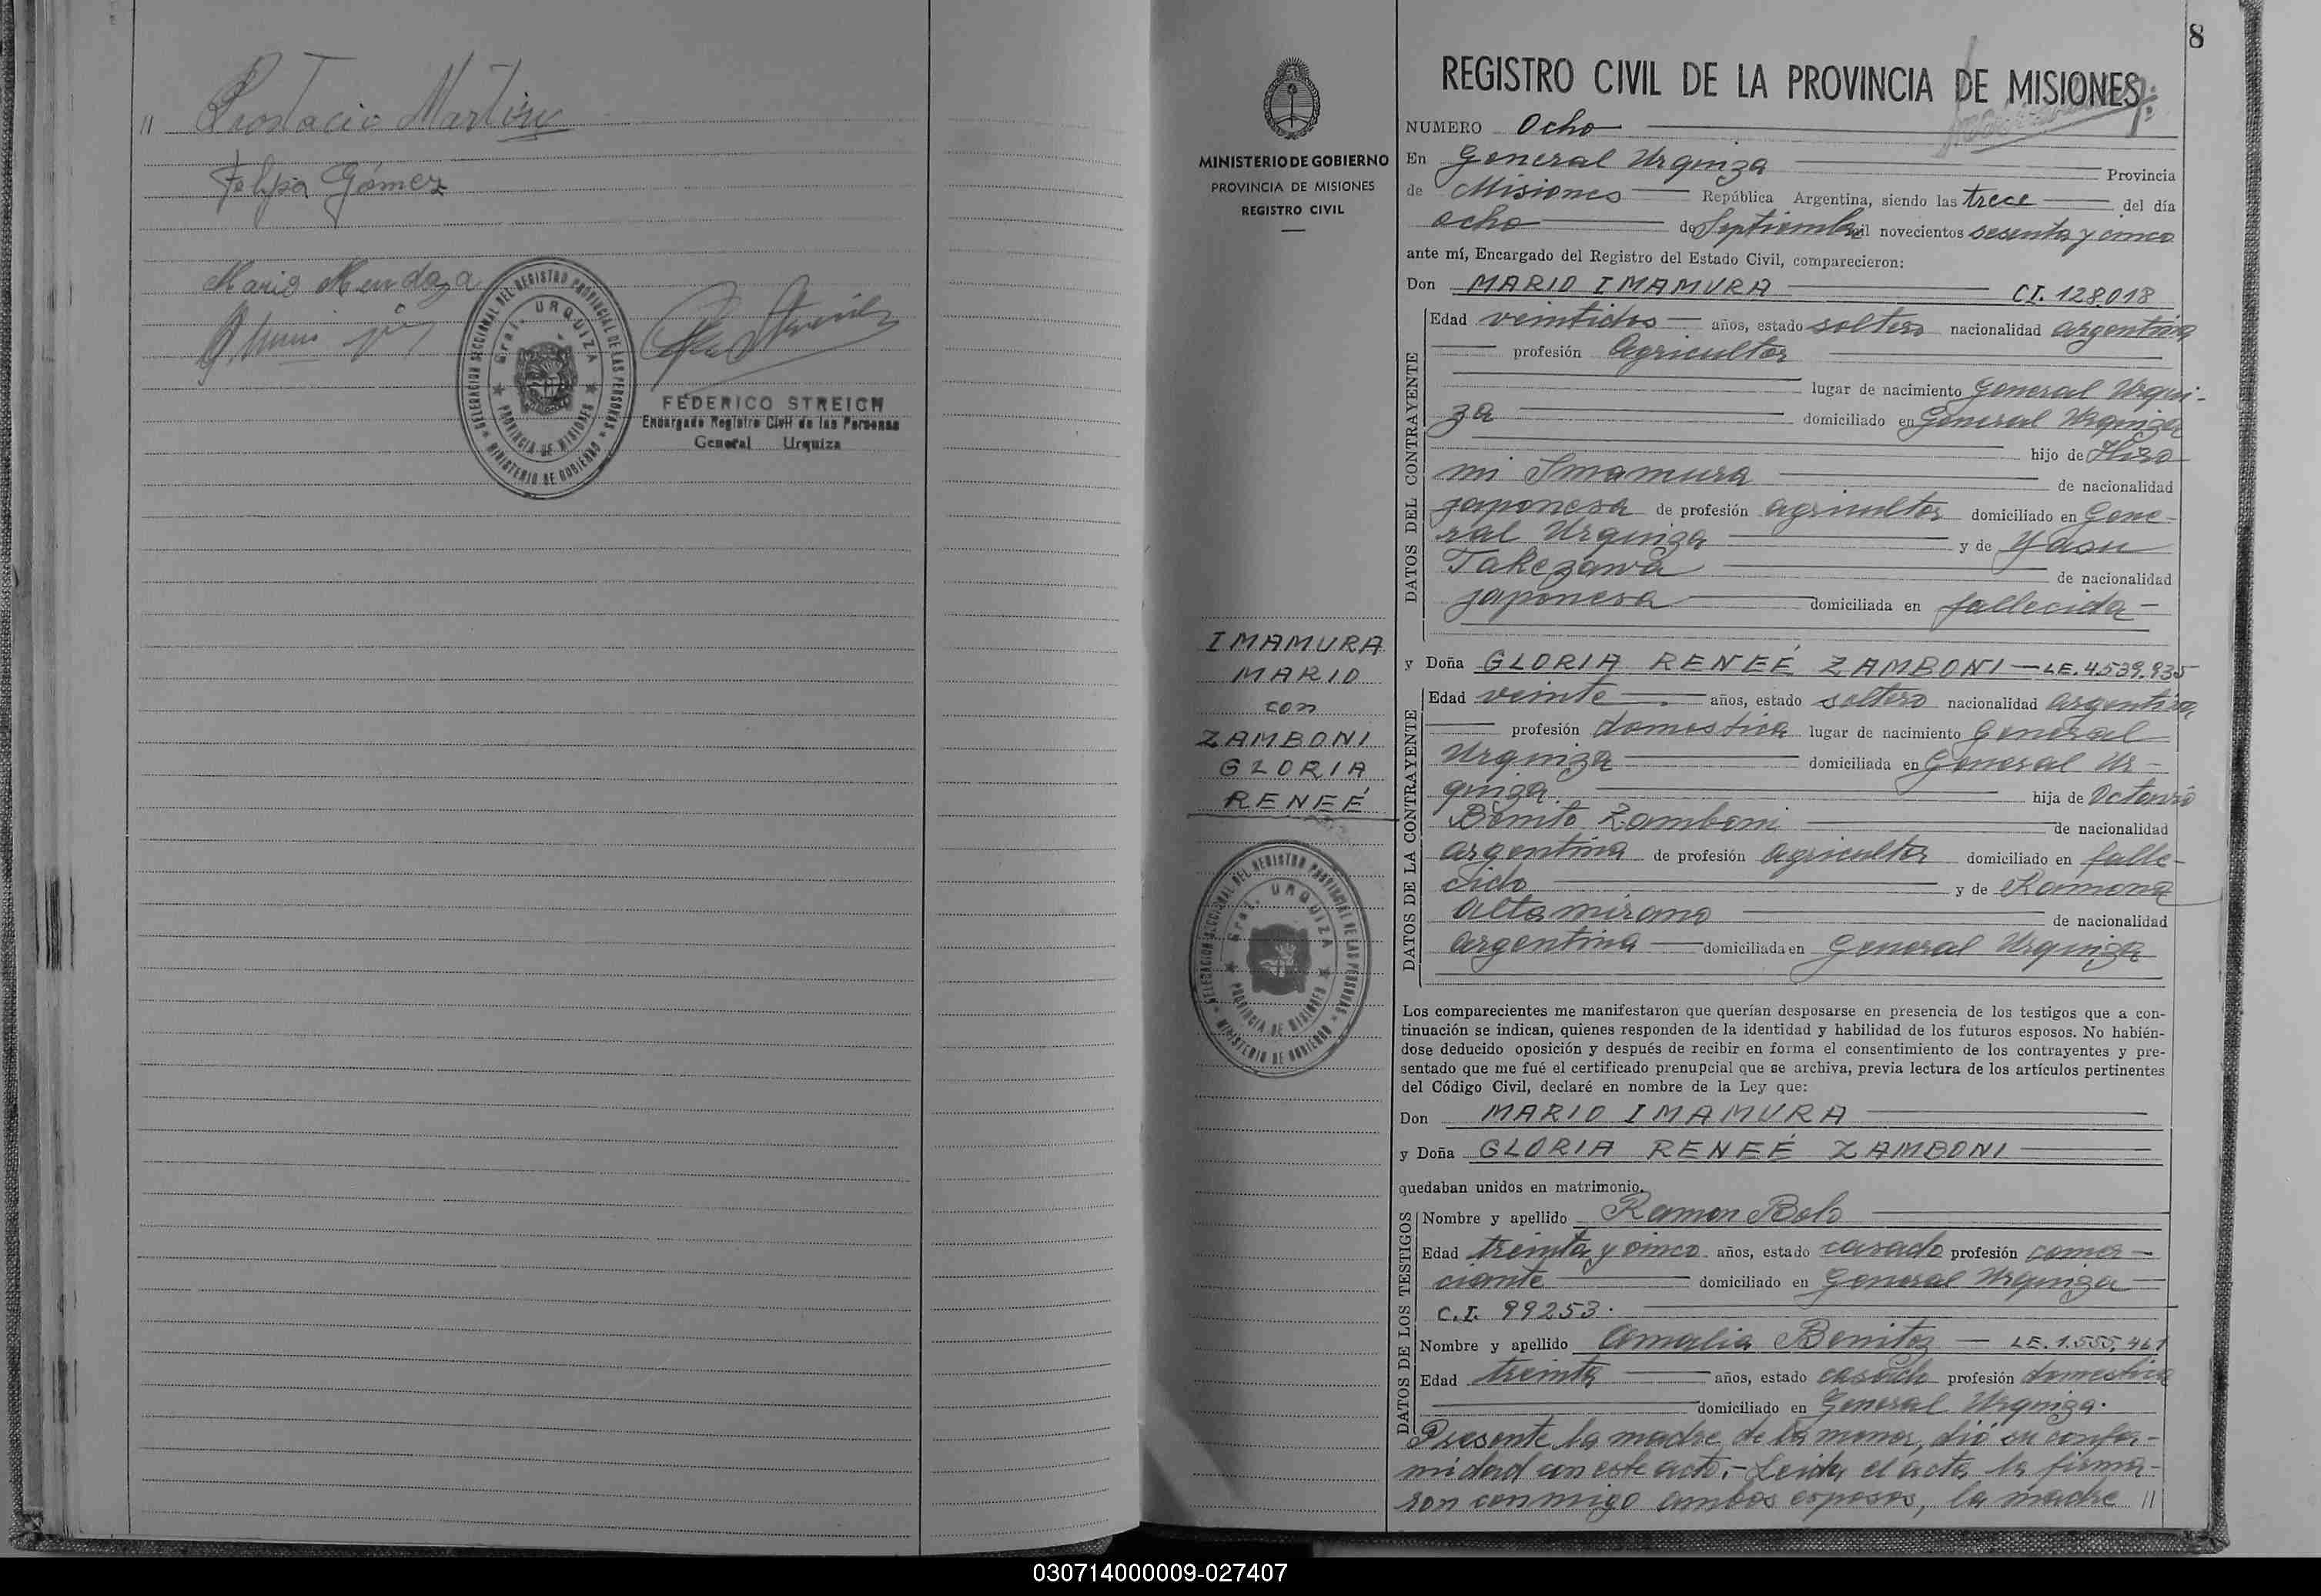 "
Felipa Gómez
Mario Mendoza
DELEGACION SECCIONAL DEL REGISTRO PROVINCIAL DE LAS PERSONAS
Gral. URQUIZA
PROVINCIA DE MISIONES
MINISTERIO DE GOBIERNO
FEDERICO STREICH
Encargado Registro Civil de las Personas
General Urquiza
8
REGISTRO CIVIL DE LA PROVINCIA DE MISIONES
MINISTERIO DE GOBIERNO
PROVINCIA DE MISIONES
REGISTRO CIVIL
IMAMURA
MARIO
con
ZAMBONI
GLORIA
RENEÉ
DELEGACION SECCIONAL DEL REGISTRO PROVINCIAL DE LAS PERSONAS
Gral. URQUIZA
PROVINCIA DE MISIONES
MINISTERIO DE GOBIERNO
NUMERO Ocho
En General Urquiza Provincia
de Misiones República Argentina, siendo las trece del día
ocho de Septiembre mil novecientos sesenta y cinco
ante mí, Encargado del Registro del Estado Civil, comparecieron:
Don MARIO IMAMURA CI. 128018
DATOS DEL CONTRAYENTE
Edad veintidos años, estado soltero nacionalidad argentina
profesión Agricultor
lugar de nacimiento General Urqui-
za domiciliado en General Urquiza
hijo de Hiro
mi Imamura de nacionalidad
japonesa de profesión agricultor domiciliado en Gene-
ral Urquiza y de Yasu
Takezawa de nacionalidad
japonesa domiciliada en fallecida-
y Doña GLORIA RENEÉ ZAMBONI-LE.4.539.935
DATOS DE LA CONTRAYENTE
Edad veinte años, estado soltero nacionalidad argentina
profesión domestica lugar de nacimiento General
Urquiza domiciliada en General Ur-
quiza. hija de Octavio
Benito Zamboni de nacionalidad
argentina de profesión agricultor domiciliado en falle-
cido y de Ramona
Altamirano de nacionalidad
argentina domiciliada en General Urquiza
Los comparecientes me manifestaron que querían desposarse en presencia de los testigos que a con-
tinuación se indican, quienes responden de la identidad y habilidad de los futuros esposos. No habién-
dose deducido oposición y después de recibir en forma el consentimiento de los contrayentes y pre-
sentado que me fué el certificado prenupcial que se archiva, previa lectura de los artículos pertinentes
del Código Civil, declaré en nombre de la Ley que:
Don MARIO IMAMURA
y Doña GLORIA RENEÉ ZAMBONI
quedaban unidos en matrimonio.
DATOS DE LOS TESTIGOS
Nombre y apellido Ramon Bolo
Edad treinta y cinco años, estado casado profesión comer-
ciante domiciliado en General Urquiza
C.I. 99253.
Nombre y apellido Amalia Benitez - LE. 1.555,461
Edad treinta años, estado casada profesión domestica
domiciliado en General Urquiza.
Presente la madre de la menor, dió su confor-
midad con este acto.- Leida el acta, la firma-
ron conmigo ambos esposos, la madre //
030714000009-027407